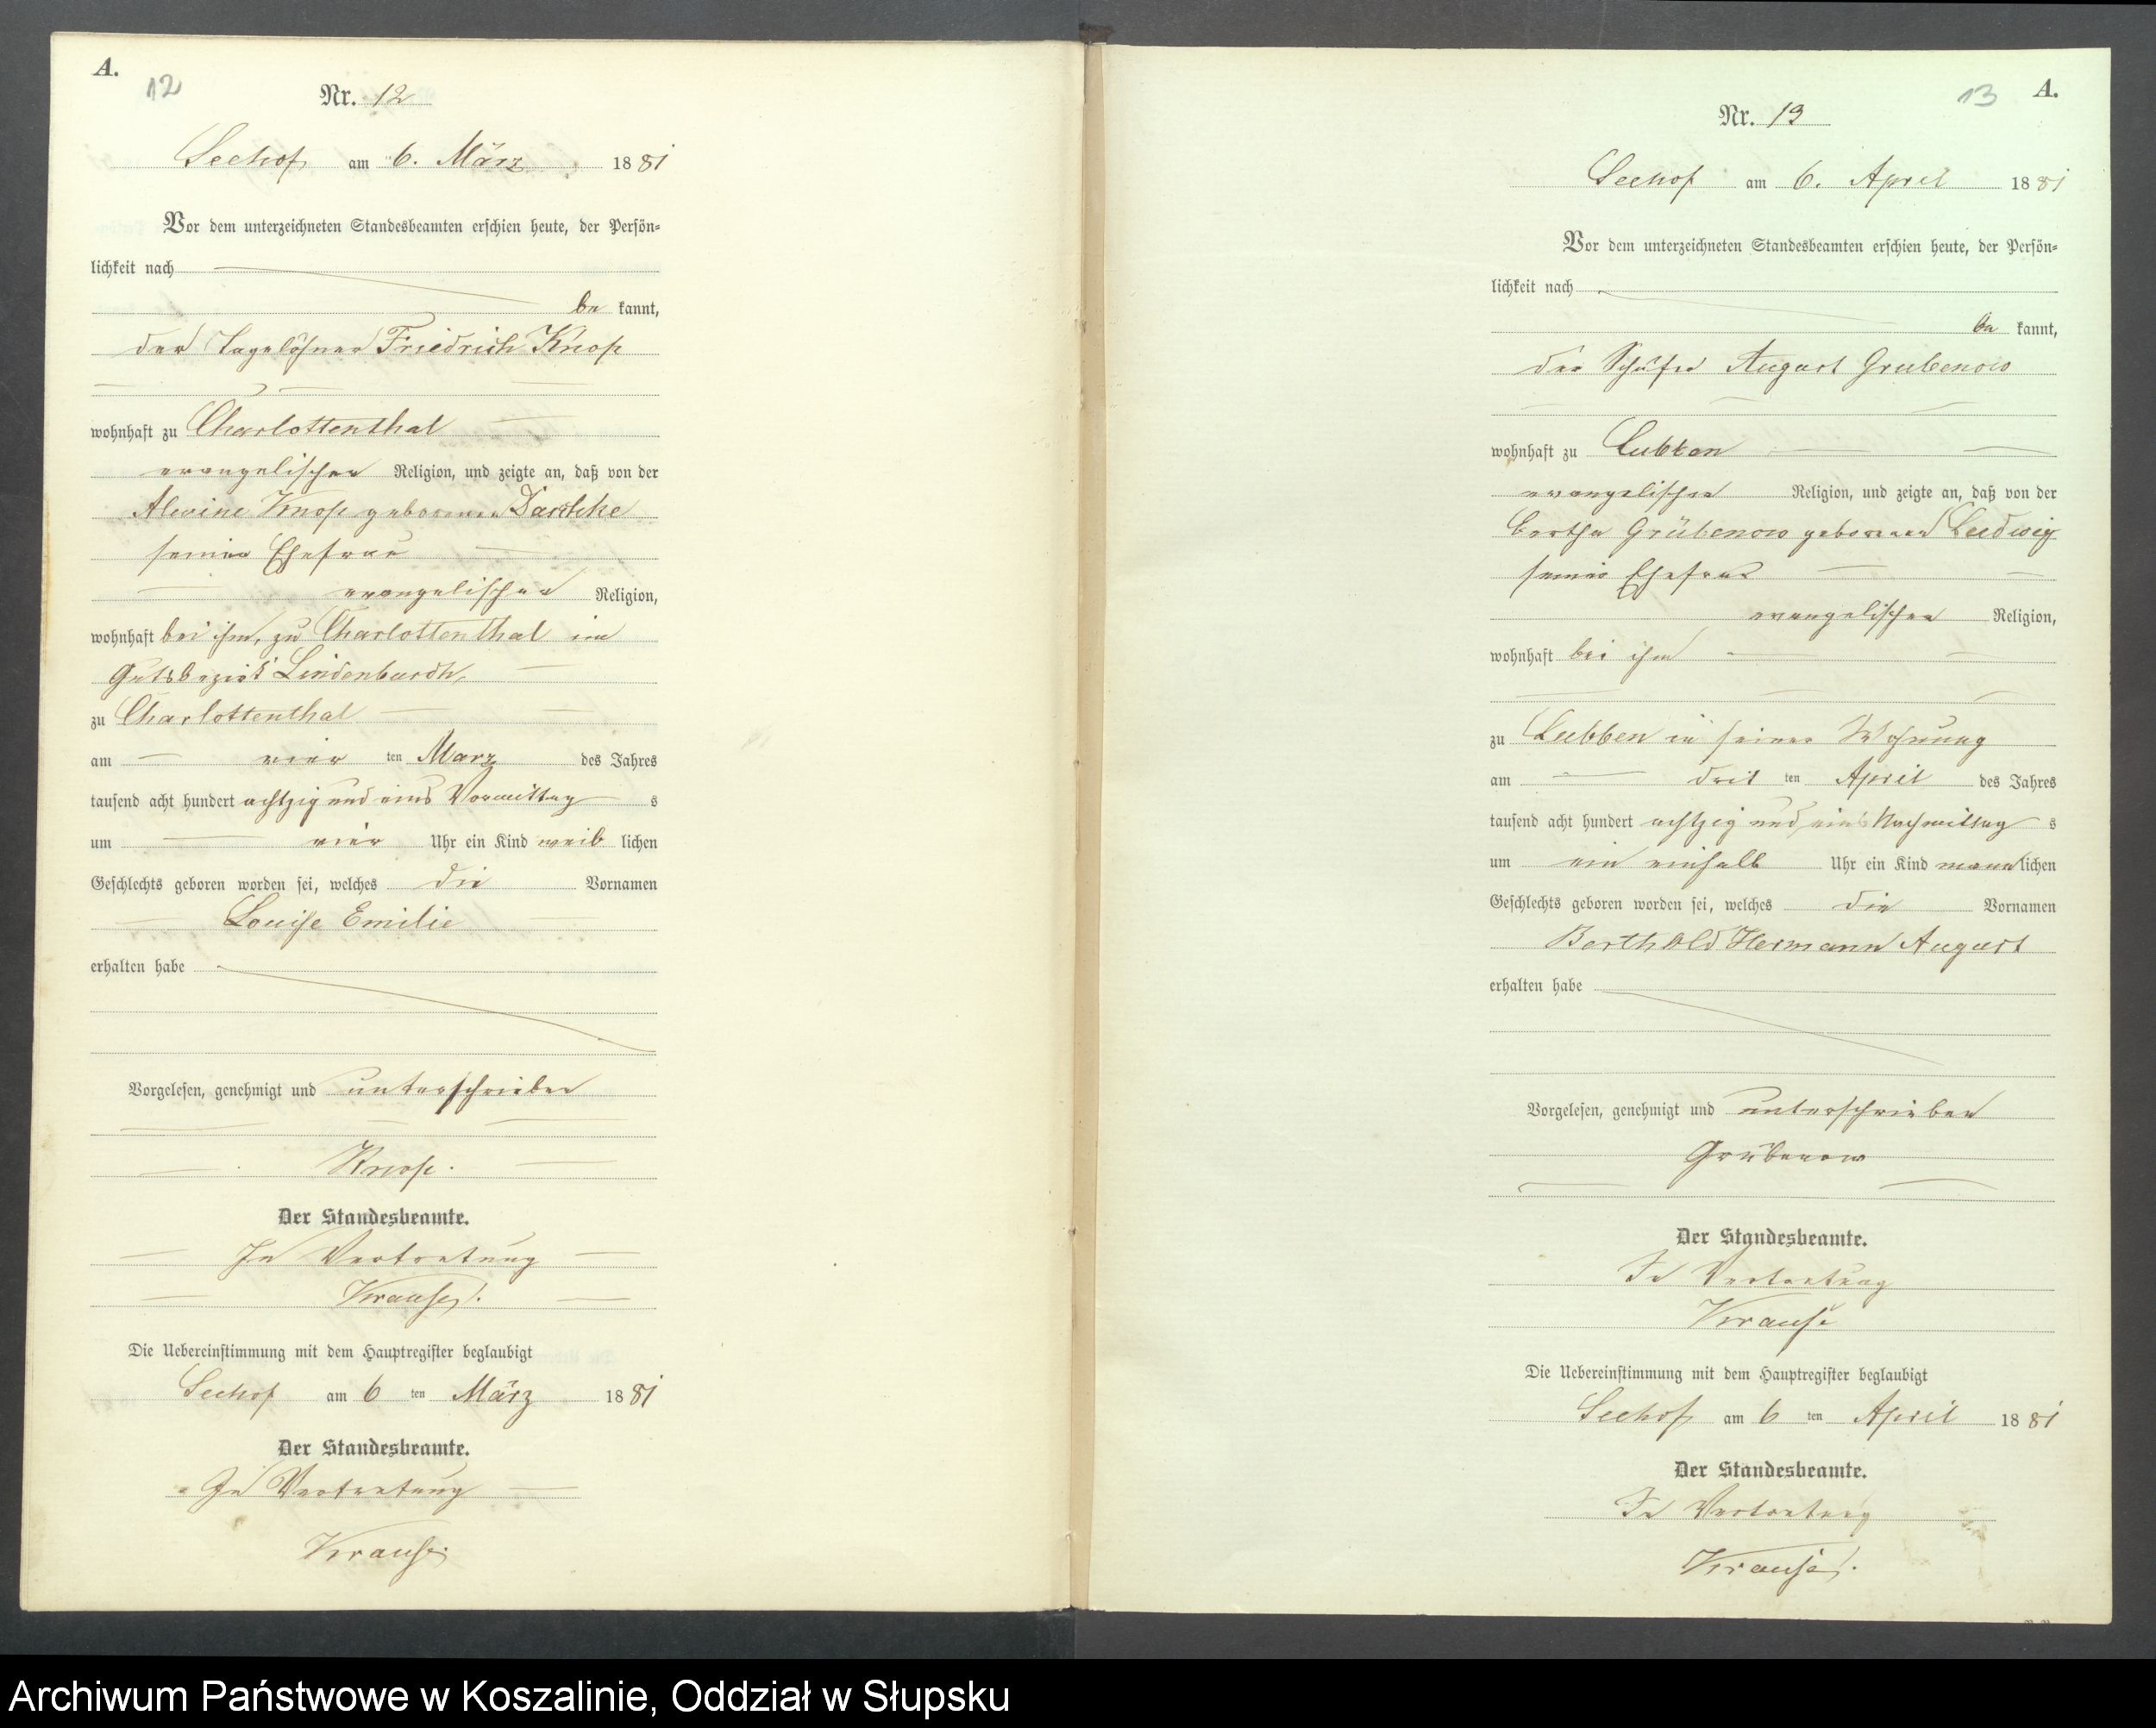 A.
12
Nr. 12
Seehof am 6. März 1881
Vor dem unterzeichneten Standesbeamten erschien heute, der Persön-
lichkeit nach
be kannt,
der Tagelöhner Friedrich Knop
wohnhaft zu Charlottenthal
evangelischer Religion, und zeigte an, daß von der
Alwine Knop geborenen
seiner Ehefrau
evangelischer Religion,
wohnhaft bei ihm, zu Charlottenthal im
Gutsbezirk
zu Charlottenthal
am vier ten März des Jahres
tausend acht hundert achtzig und eins Vormittag s
um vier Uhr ein Kind weib lichen
Geschlechts geboren worden sei, welches die Vornamen
Louise Emilie
erhalten habe
Vorgelesen, genehmigt und unterschrieben
Knop.
Der Standesbeamte.
In Vertretung
Krause.
Die Uebereinstimmung mit dem Hauptregister beglaubigt
Seehof am 6 ten März 1881
Der Standesbeamte.
In Vertretung
Krause.
13
A.
Nr. 13
Seehof am 6. April 1881
Vor dem unterzeichneten Standesbeamten erschien heute, der Persön-
lichkeit nach
be kannt,
der Schäfer August Grubenow
wohnhaft zu Lubben
evangelischer Religion, und zeigte an, daß von der
Bertha Grübenow geborenen Ludwig
seiner Ehefrau
evangelischer Religion,
wohnhaft bei ihm
zu Lubben in seiner Wohnung
am drit ten April des Jahres
tausend acht hundert achtzig und eins Nachmittag s
um ein einhalb Uhr ein Kind männ lichen
Geschlechts geboren worden sei, welches die Vornamen
Berthold Hermann August
erhalten habe
Vorgelesen, genehmigt und unterschrieben
Grübenow
Der Standesbeamte.
In Vertretung
Krause
Die Uebereinstimmung mit dem Hauptregister beglaubigt
Seehof am 6 ten April 1881
Der Standesbeamte.
In Vertretung
Krause.
Archiwum Państwowe w Koszalinie, Oddział w Słupsku